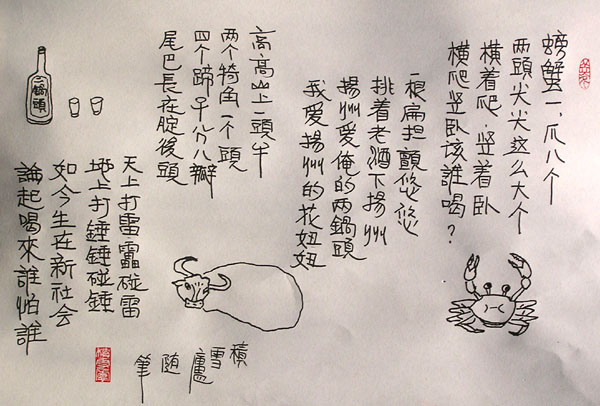 螃蟹一,爪八个
两頭尖尖这么大个
橫着爬,竖着卧
橫爬竖卧该誰喝?
一根扁担顫悠悠
挑着老酒下揚州
揚州愛俺的两鍋頭
我愛揚州的花妞妞
高高山上一頭牛
两个犄角一个頭
四个蹄子分八瓣
尾巴長在腚後頭
二鍋頭
天上打雷雷碰雷
地上打錘錘碰錘
如今生在新社会
論起喝來誰怕誰
積雪廬随筆